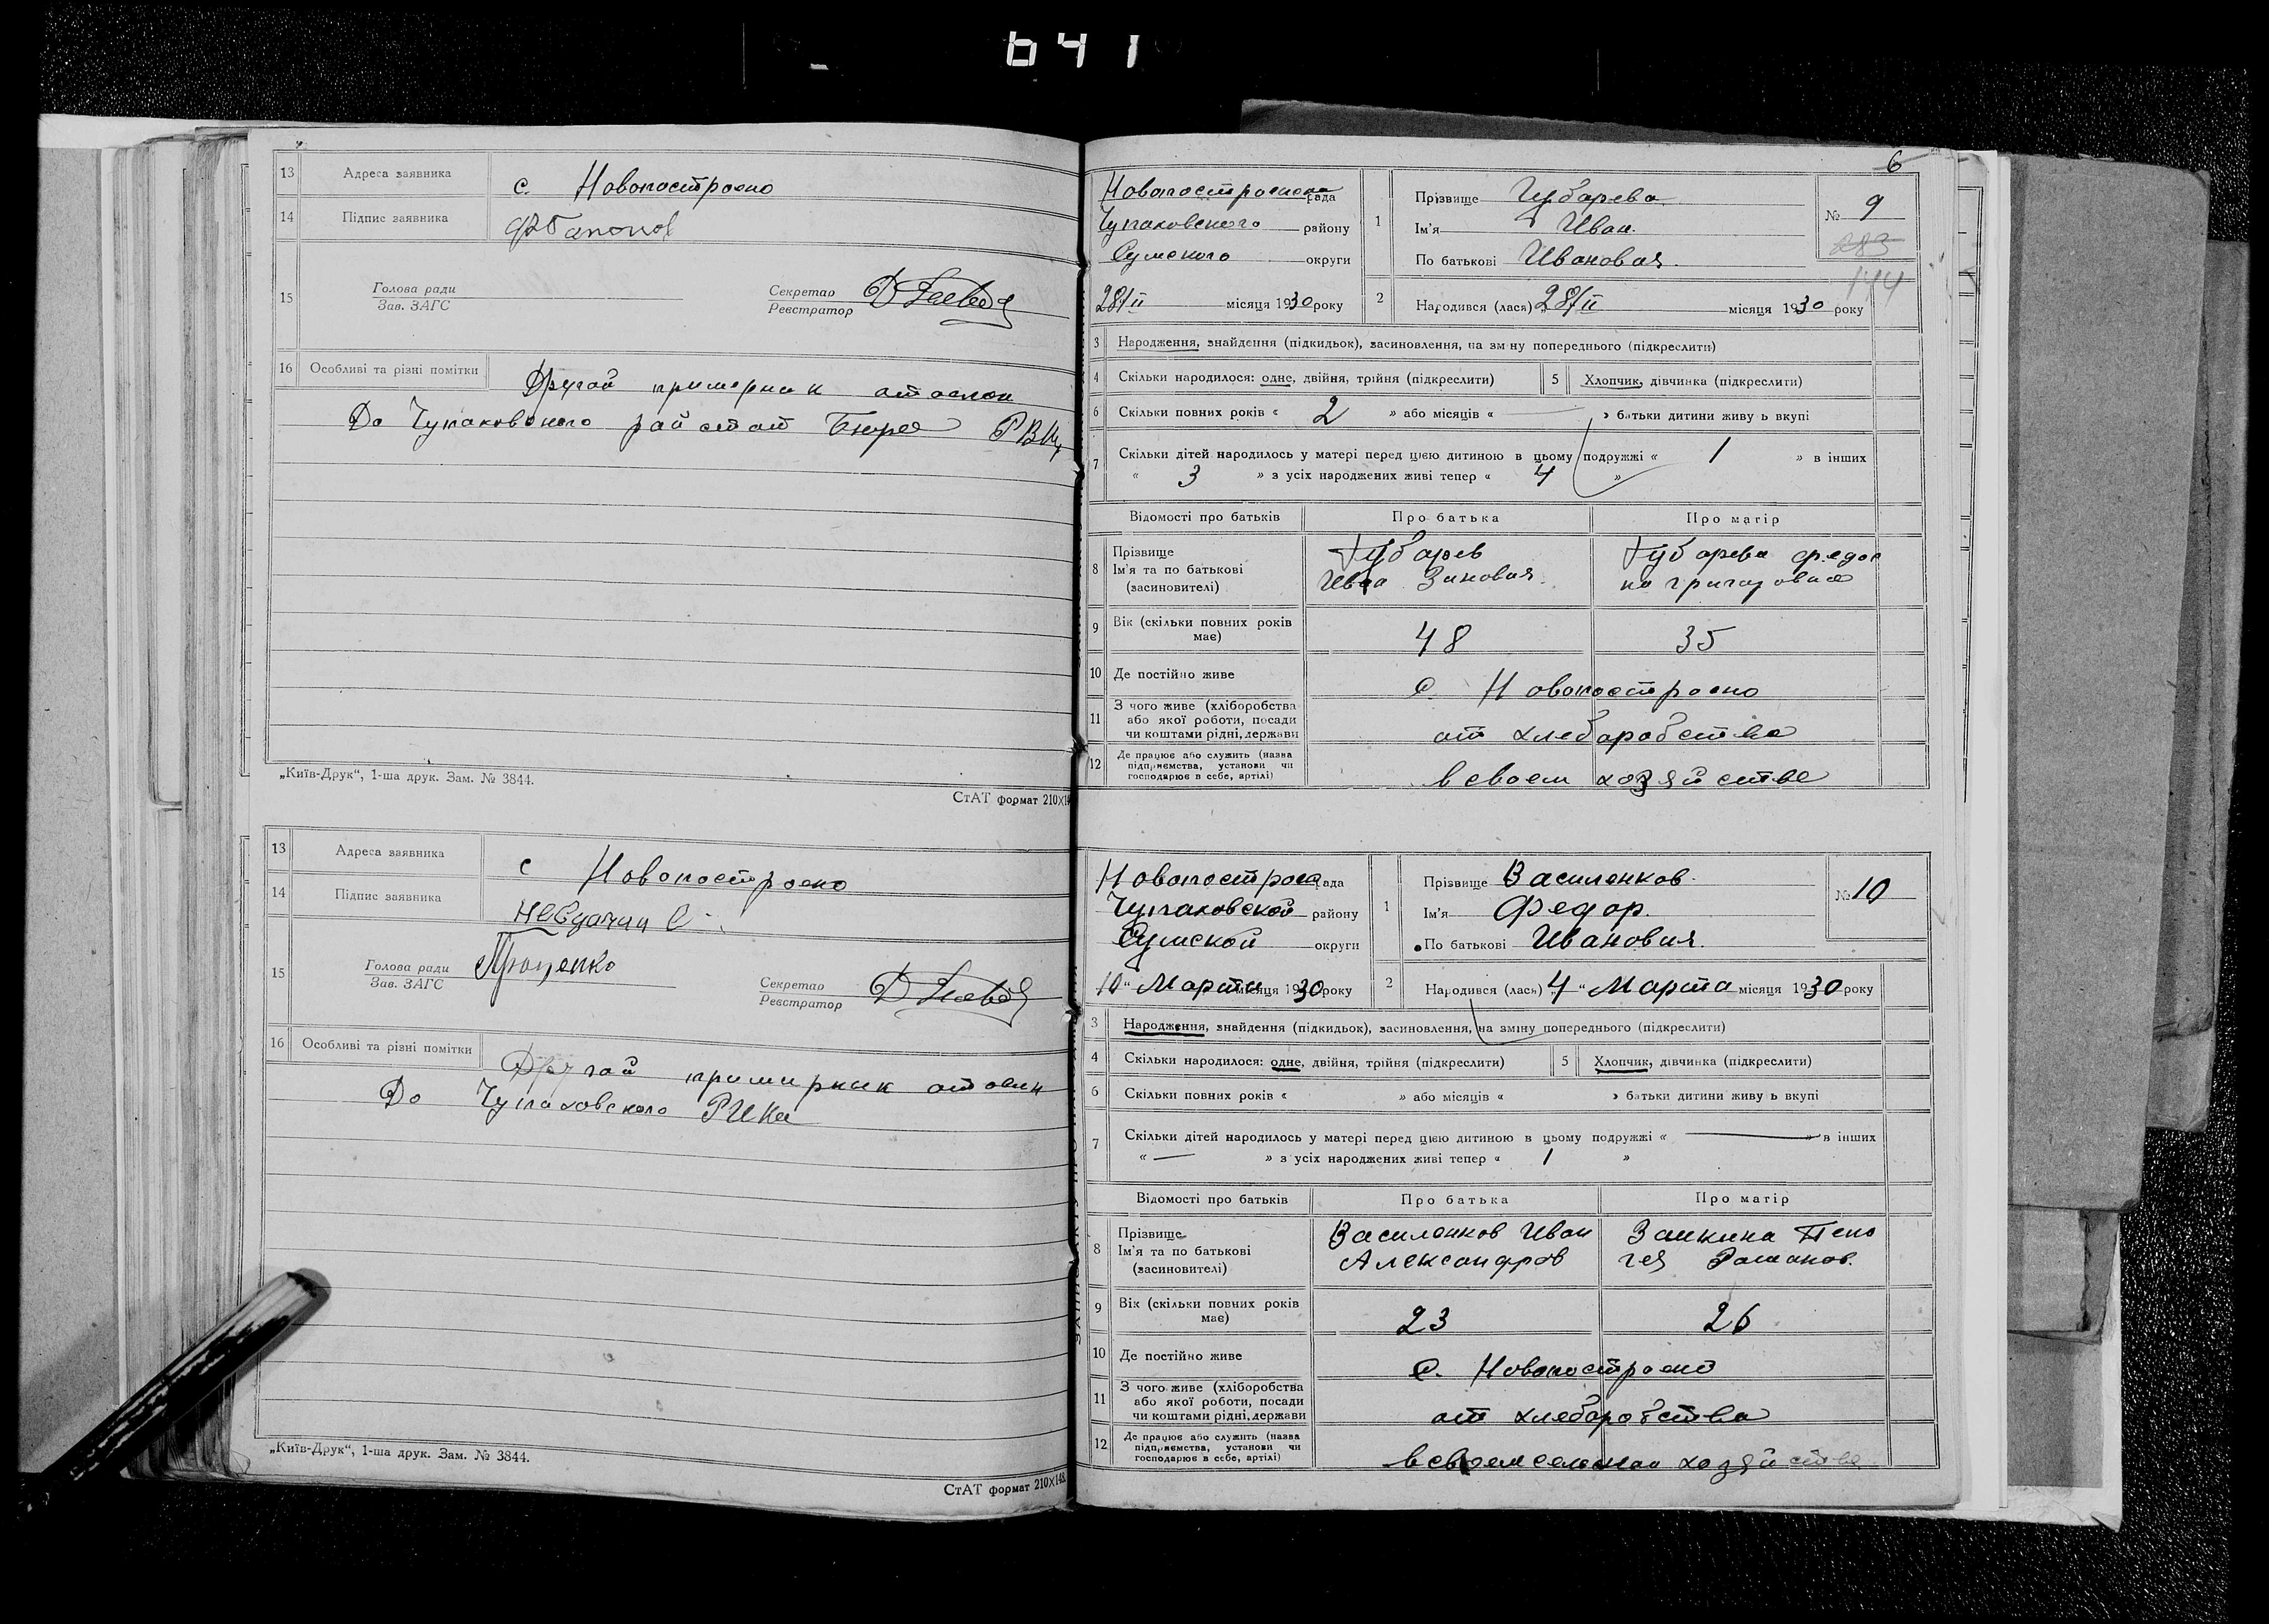 641
13 Адреса заявника с. Новопостроено
14 Підпис заявника
15 Голова ради
Зав. ЗАГС
Секретар
Реєстратор
16 Особливі та різні помітки Другой примерник отослан
До Чупаховского рай стат Бюро РВК
„Київ-Друк“, 1-ша друк. Зам. № 3844.
СтАТ формат 210×14
13 Адреса заявника с Новопостроено
14 Підпис заявника
15 Голова ради Проценко
Зав. ЗАГС
Секретар
Реєстратор
16 Особливі та різні помітки Другой примирник отослан
До Чупаховского РИКа
„Київ-Друк“, 1-ша друк. Зам. № 3844.
СтАТ формат 210×148
6
Новопостроенска рада
Чупаховского району
Сумского округи
28/II місяця 1930 року
1 Прізвище Губарева
Ім'я Иван
По батькові Иванович
№ 9
283
144
2 Народився (лася) 28/II місяця 1930 року
3 Народження, знайдення (підкидьок), засиновлення, на зміну попереднього (підкреслити)
4 Скільки народилося: одне, двійня, трійня (підкреслити) 5 Хлопчик, дівчинка (підкреслити)
6 Скільки повних років « 2 » або місяців « — » батьки дитини живуть вкупі
7 Скільки дітей народилось у матері перед цією дитиною в цьому подружжі « 1 » в інших
« 3 » з усіх народжених живі тепер « 4 »
Відомості про батьків Про батька Про матір
8 Прізвище
Ім'я та по батькові
(засновителі)
Губарев
Иван Зиновия
Губарева Федос
на Григоровна
9 Вік (скільки повних років має) 48 35
10 Де постійно живе с. Новопостроено
11 З чого живе (хліборобства
або якої роботи, посади
чи коштами рідні, держави
от хлеборобства
12 Де працює або служить (назва
підприємства, установи чи
господарює в себе, артілі)
в своем хозяйстве
Новопострое рада
Чупаховской району
Сумской округи
10 “ Марта місяця 1930 року
1 Прізвище Василенков
Ім'я Федор.
По батькові Иванович.
№ 10
2 Народився (лась) 4 “ Марта місяця 1930 року
3 Народження, знайдення (підкидьок), засиновлення, на зміну попереднього (підкреслити)
4 Скільки народилося: одне, двійня, трійня (підкреслити) 5 Хлопчик, дівчинка (підкреслити)
6 Скільки повних років « » або місяців « » батьки дитини живуть вкупі
7 Скільки дітей народилось у матері перед цією дитиною в цьому подружжі « — » в інших
« — » з усіх народжених живі тепер « 1 »
Відомості про батьків Про батька Про матір
8 Прізвище
Ім'я та по батькові
(засиновителі)
Василенков Иван
Александров
Заикина Пела
гея Романов.
9 Вік (скільки повних років має) 23 26
10 Де постійно живе с. Новопостроено
11 З чого живе (хліборобства
або якої роботи, посади
чи коштами рідні, держави
от хлеборобства
12 Де працює або служить (назва
підприємства, установи чи
господарює в себе, артілі)
в своем сельском хозяйстве